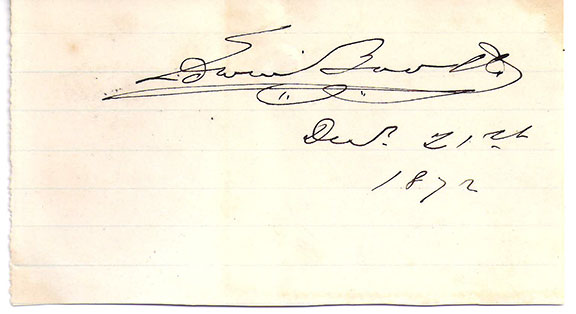 Edwin Booth
Dec. 21st
1872